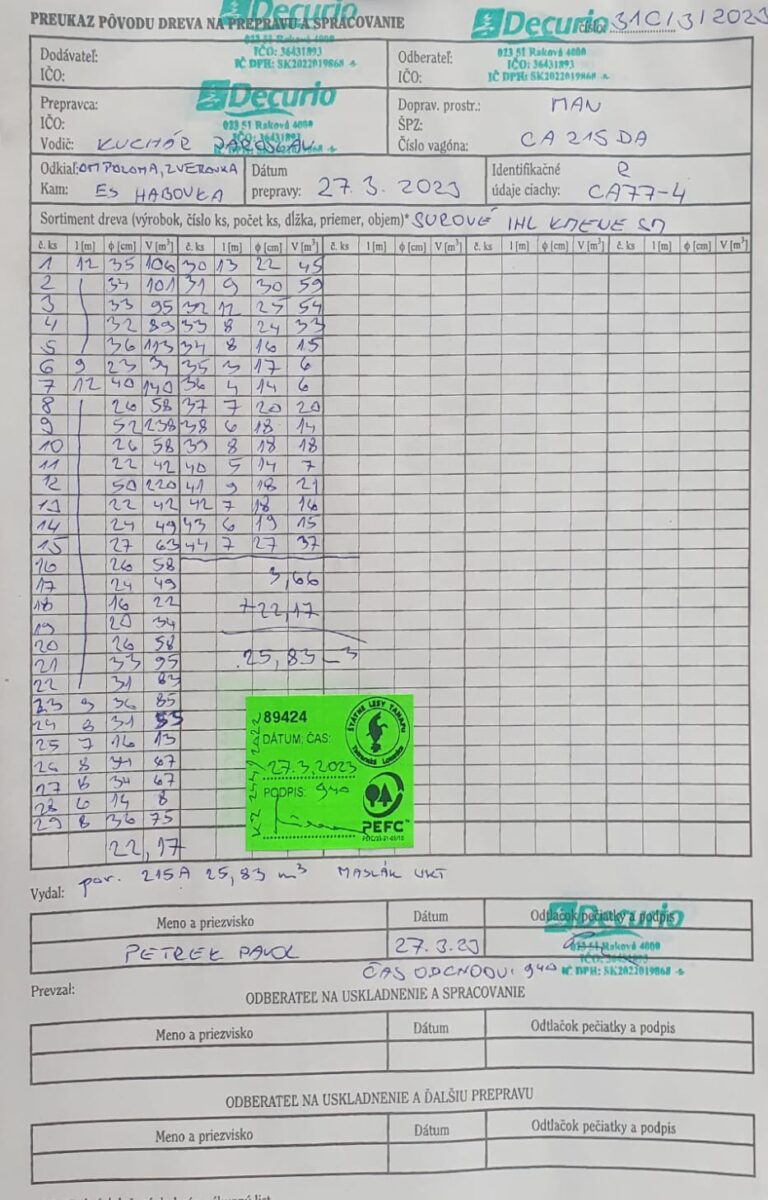 PREUKAZ PÔVODU DREVA NA PREPRAVU A SPRACOVANIE
Decurio
Decurio
číslo: 31C/3/2023
Dodávateľ:
023 51 Raková 4000
IČO: 36431893
IČ DPH: SK2022019868 -6-
IČO:
Odberateľ:
023 51 Raková 4000
IČO: 36431893
IČ DPH: SK2022019868 -6-
IČO:
Prepravca:
Decurio
IČO:
023 51 Raková 4000
Vodič: KUCHÁR JAROSLAV
IČO: 36431893
IČ DPH: SK2022019868 -6-
Doprav. prostr.: MAN
ŠPZ:
Číslo vagóna: CA 215 DA
Odkiaľ: OM POLOMA, ZVEROVKA
Kam: ES HABOVKA
Dátum
prepravy: 27. 3. 2023
Identifikačné
údaje ciachy: CA77-4
Sortiment dreva (výrobok, číslo ks, počet ks, dĺžka, priemer, objem)* SUROVÉ IHL KMENE SM
č. ks l [m] ϕ [cm] V [m³] č. ks l [m] ϕ [cm] V [m³] č. ks l [m] ϕ [cm] V [m³] č. ks l [m] ϕ [cm] V [m³] č. ks l [m] ϕ [cm] V [m³]
1 12 35 106 30 13 22 45
2 34 101 31 9 30 59
3 33 95 32 12 25 54
4 32 89 33 8 24 33
5 36 113 34 8 16 15
6 9 23 34 35 3 17 6
7 12 40 140 36 4 14 6
8 26 58 37 7 20 20
9 52 238 38 6 18 14
10 26 58 39 8 18 18
11 22 42 40 5 14 7
12 50 220 41 9 18 21
13 22 42 42 7 18 16
14 24 49 43 6 19 15
15 27 63 44 7 27 37
16 26 58
17 24 49 3,66
18 16 22
19 20 34 +22,17
20 26 58
21 33 95 25,83 m³
22 31 83
23 9 36 85
24 8 31 55
25 7 16 13
26 8 34 67
27 8 34 67
28 6 14 8
29 8 36 75
22,17
89424
DÁTUM, ČAS:
27.3.2023
PODPIS: 940
ŠTÁTNE LESY TANAPU
Tatranská Lomnica
PEFC™
Vydal: por. 215A 25,83 m³ MASLÁK UKT
Meno a priezvisko Dátum Odtlačok pečiatky a podpis
Decurio
PETREK PAVOL 27.3.23
023 51 Raková 4000
IČO: 36431893
IČ DPH: SK2022019868 -6-
ČAS ODCHODU: 940
Prevzal:
ODBERATEĽ NA USKLADNENIE A SPRACOVANIE
Meno a priezvisko Dátum Odtlačok pečiatky a podpis
ODBERATEĽ NA USKLADNENIE A ĎALŠIU PREPRAVU
Meno a priezvisko Dátum Odtlačok pečiatky a podpis